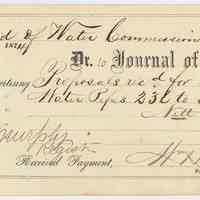 d of Water Commission
Dr. to Journal of
ertising Proposals rec'd for
Water Pipes 23 to
Nett
Murphy
Received Payment,